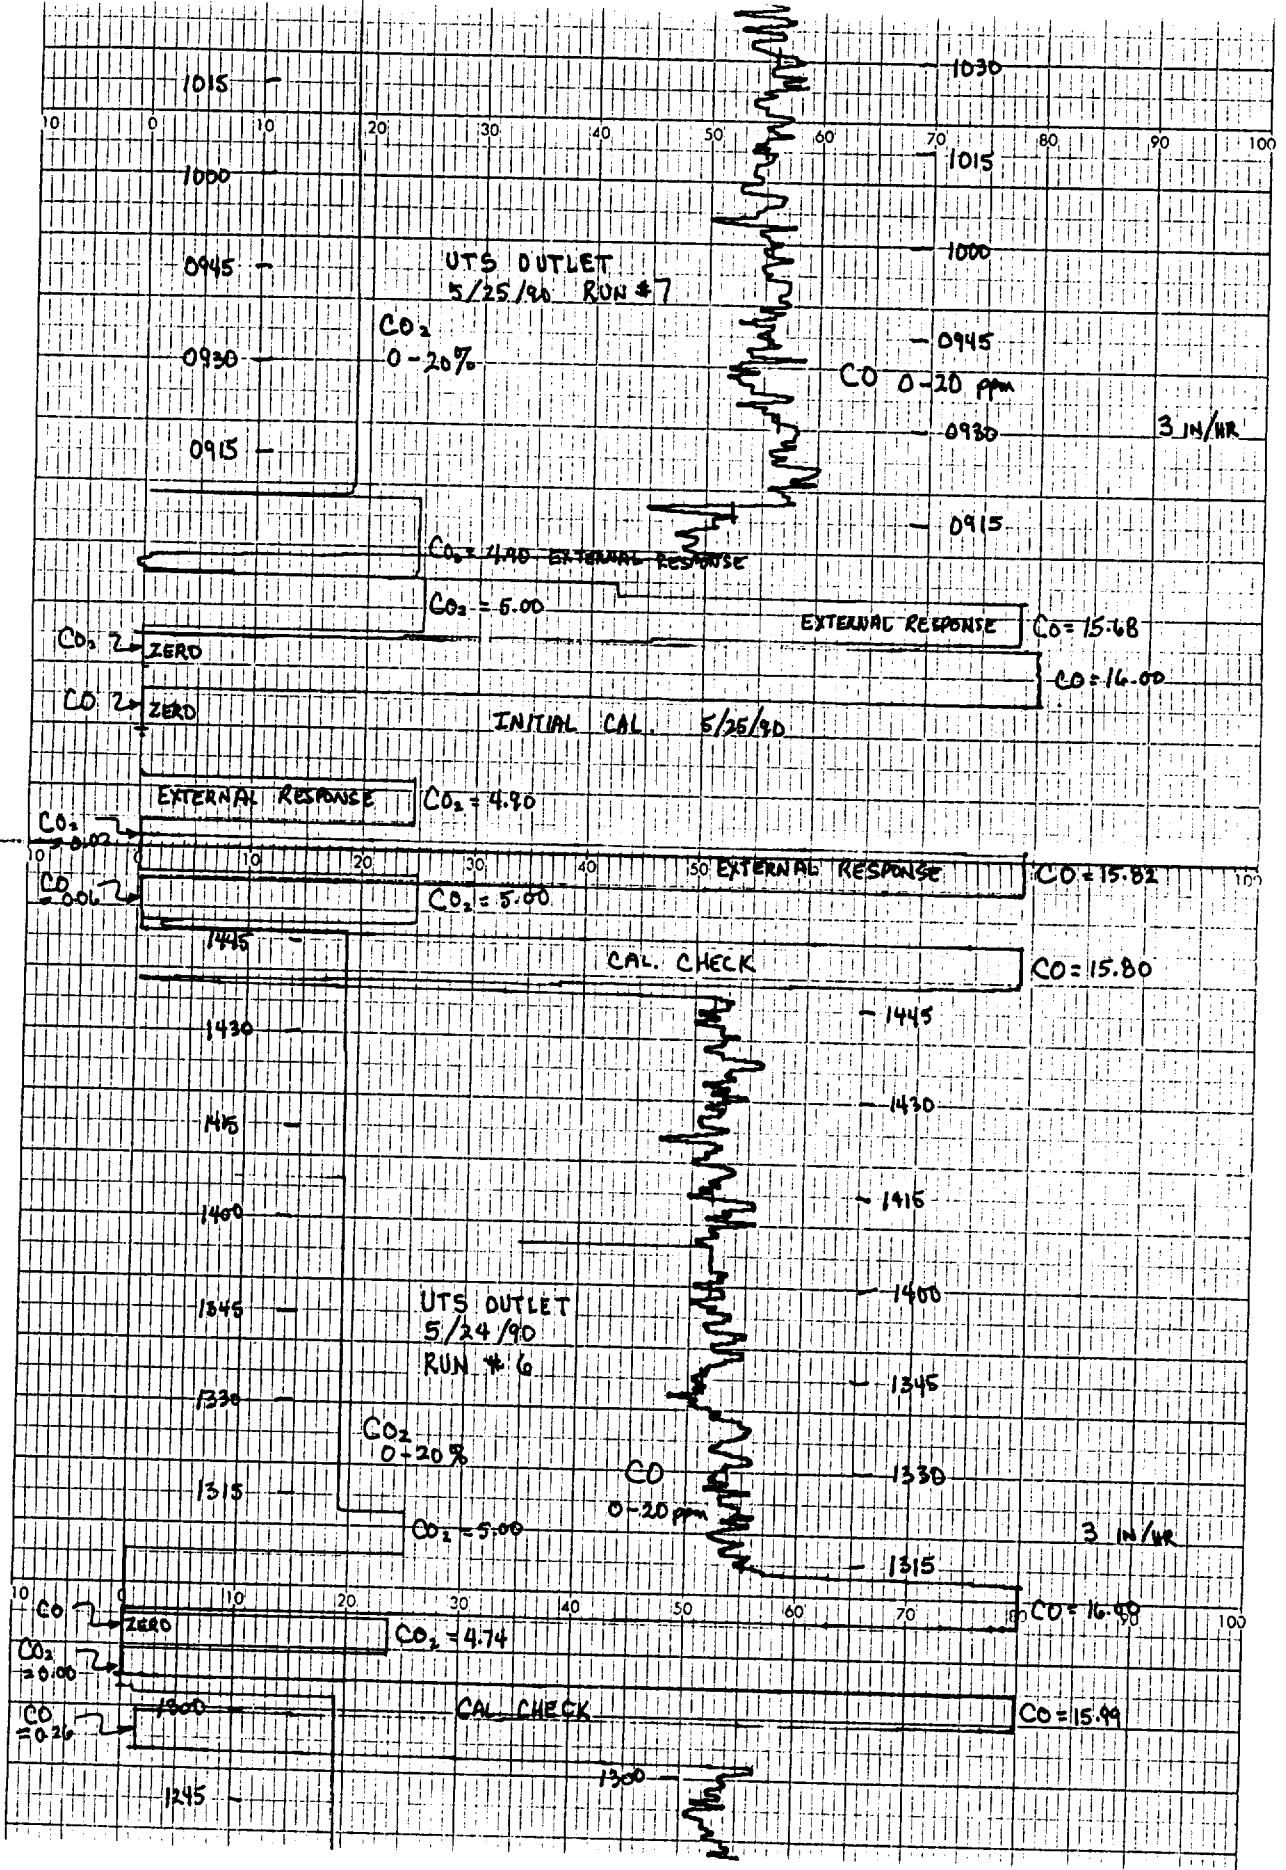 1030
1015
10 0 10 20 30 40 50 60 70 80 90 100
1015
1000
1000
0945
UTS OUTLET
5/25/90 RUN #7
CO2
0-20%
0945
0930
CO 0-20 ppm
0930
3 IN/HR
0915
0915
CO2 = 4.90 EXTERNAL RESPONSE
CO2 = 5.00
EXTERNAL RESPONSE
CO = 15.68
CO2
ZERO
CO = 16.00
CO
ZERO
INITIAL CAL. 5/25/90
EXTERNAL RESPONSE
CO2 = 4.90
CO2
= 0.02
10 0 10 20 30 40 50
EXTERNAL RESPONSE
CO = 15.82
100
CO
= 0.06
CO2 = 5.00
1445
CAL. CHECK
CO = 15.80
1445
1430
1430
1415
1415
1400
1400
1345
UTS OUTLET
5/24/90
RUN # 6
1345
1330
CO2
0-20%
CO
0-20 ppm
1330
1315
CO2 = 5.00
3 IN/HR
1315
10 0 10 20 30 40 50 60 70 80 90 100
CO
ZERO
CO2 = 4.74
CO2
= 0.00
1300
CAL CHECK
CO = 15.99
CO
= 0.26
1300
1245